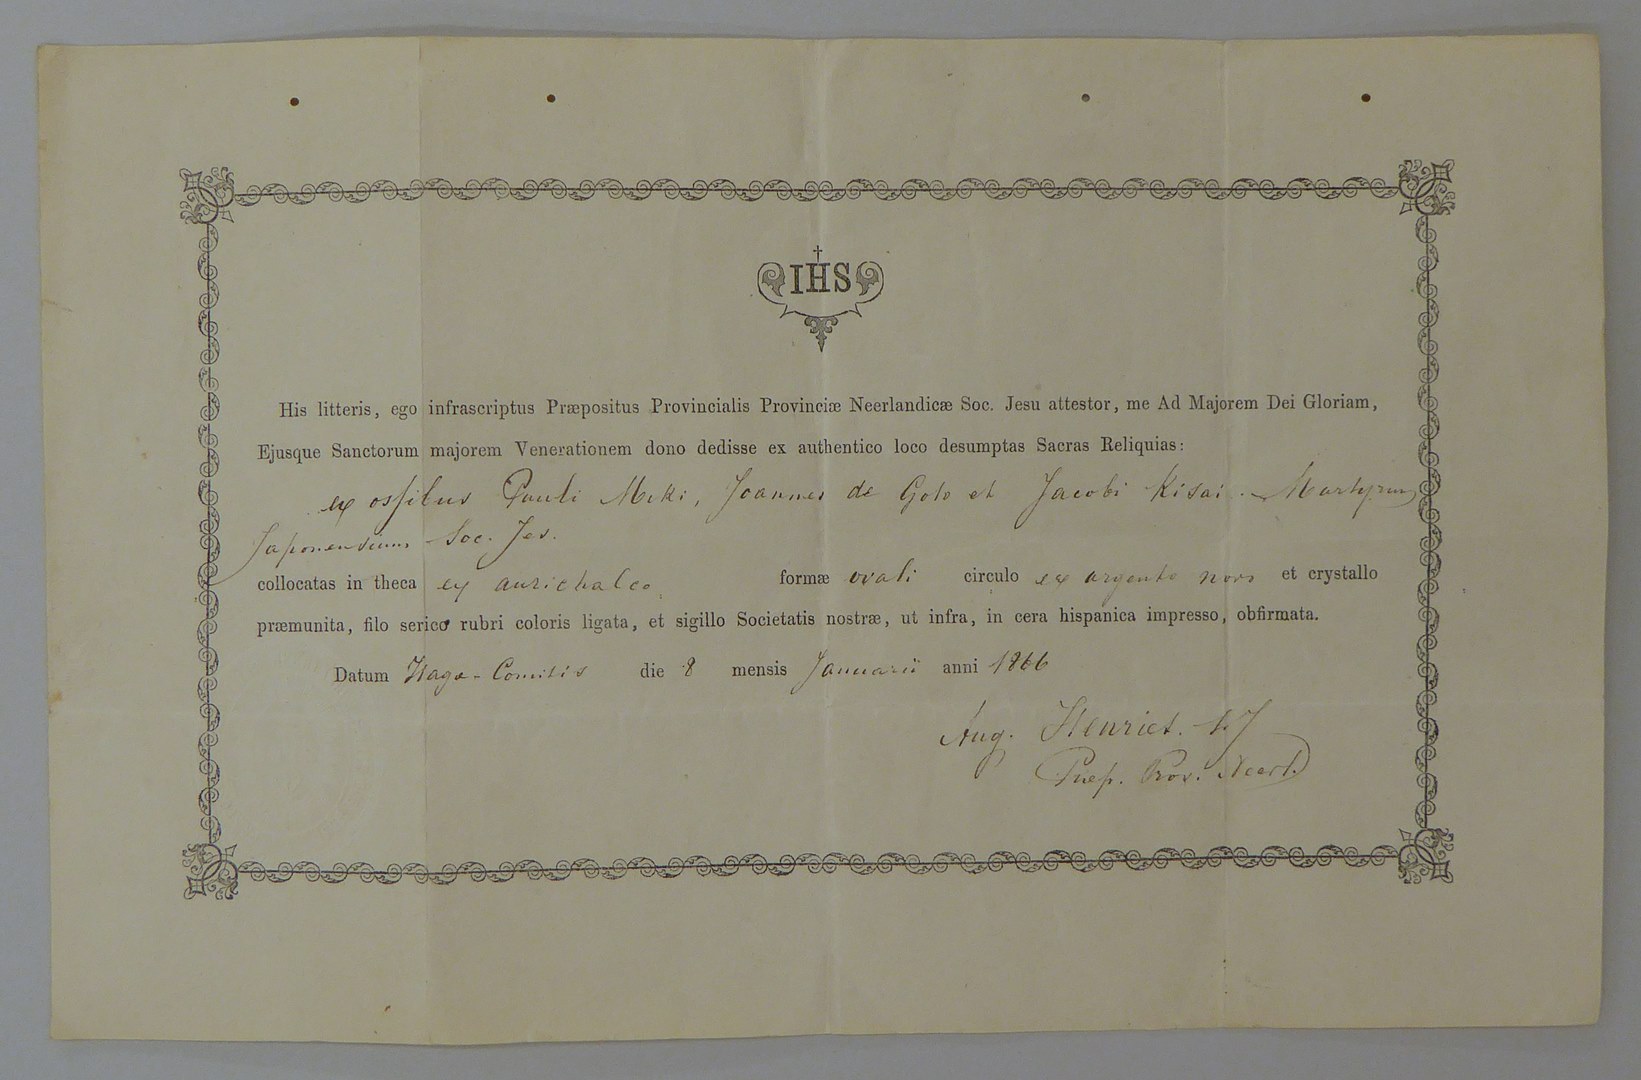 IHS
His litteris, ego infrascriptus Præpositus Provincialis Provinciæ Neerlandicæ Soc. Jesu attestor, me Ad Majorem Dei Gloriam,
Ejusque Sanctorum majorem Venerationem dono dedisse ex authentico loco desumptas Sacras Reliquias:
ex ossibus Pauli Miki, Joannes de Goto et Jacobi Kisai. Martyrum
Japonensium Soc. Jes.
collocatas in theca ex aurichalco formæ ovali circulo ex argento et crystallo
præmunita, filo serico rubri coloris ligata, et sigillo Societatis nostræ, ut infra, in cera hispanica impresso, obfirmata.
Datum Hagæ-Comitis die 8 mensis Januarii anni 1866
Aug. Henriet. S.J
Præp. Prov. Neerl.